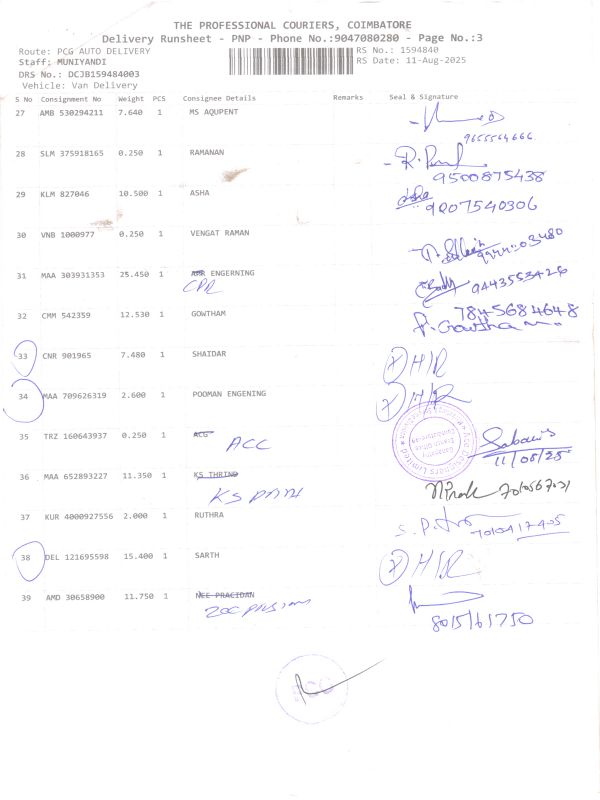 THE PROFESSIONAL COURIERS, COIMBATORE
Delivery Runsheet - PNP - Phone No.:9047080280 - Page No.:3
Route: PCG AUTO DELIVERY RS No.: 1594840
Staff: MUNIYANDI RS Date: 11-Aug-2025
DRS No.: DCJB159484003
Vehicle: Van Delivery
S No Consignment No Weight PCS Consignee Details Remarks Seal & Signature
27 AMB 530294211 7.640 1 MS AQUPENT
9655564666
28 SLM 375918165 0.250 1 RAMANAN
9500875438
29 KLM 827046 10.500 1 ASHA Asha
9207540306
30 VNB 1000977 0.250 1 VENGAT RAMAN
31 MAA 303931353 25.450 1 ENGERNING 9443553426
CPR
32 CMM 542359 12.530 1 GOWTHAM 7845684648
P. Gowtham
33 CNR 901965 7.480 1 SHAIDAR H/R
34 MAA 709626319 2.600 1 POOMAN ENGENING H/R
35 TRZ 160643937 0.250 1 ACG
ACC 11/08/25
36 MAA 652893227 11.350 1 KS THRIND
KS Print
37 KUR 4000927556 2.000 1 RUTHRA
38 DEL 121695598 15.400 1 SARTH H/R
39 AMD 30658900 11.750 1 NEE PRACIDAN
8015161750